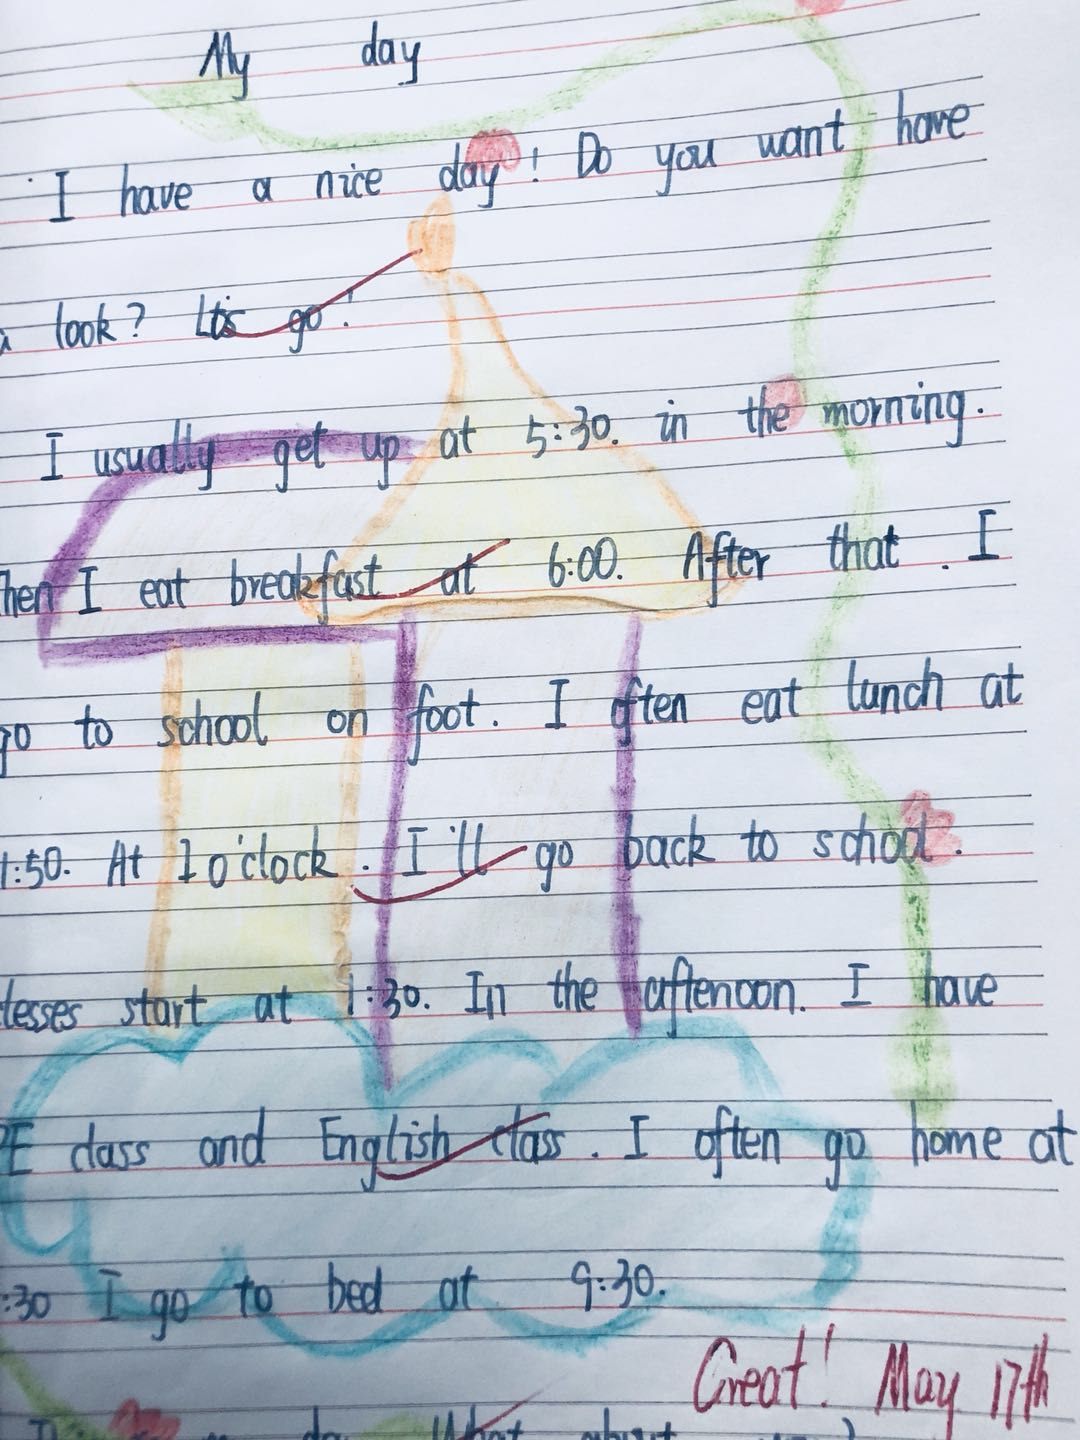 My day
I have a nice day! Do you want have
a look? Lt's go!
I usually get up at 5:30. in the morning.
Then I eat breakfast at 6:00. After that . I
go to school on foot. I often eat lunch at
1:50. At 1 o'clock . I'll go back to school.
start at 1:30. In the aftenoon. I have
PE class and English class . I often go home at
:30 I go to bed at 9:30.
Great! May 17th
What about